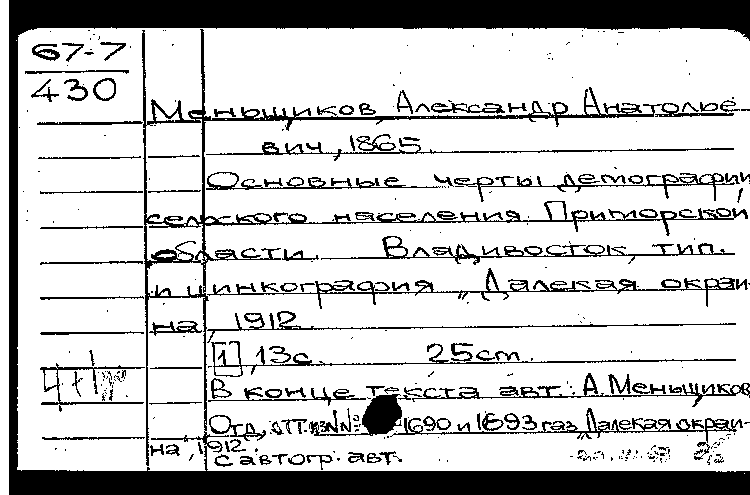 67-7
430
Меньщиков, Александр Анатолье
вич, 1865.
Основные черты демографии
сельского населения Приморской
области. Владивосток, тип.
и цинкография „Далекая окраи-
на, 1912.
[1], 13с. 25cm.
В конце текста авт.: А. Меньщиков
Отд. отт. из №№ 1690 и 1693 газ. „Далекая окраи-
на, 1912.
С автогр. авт.